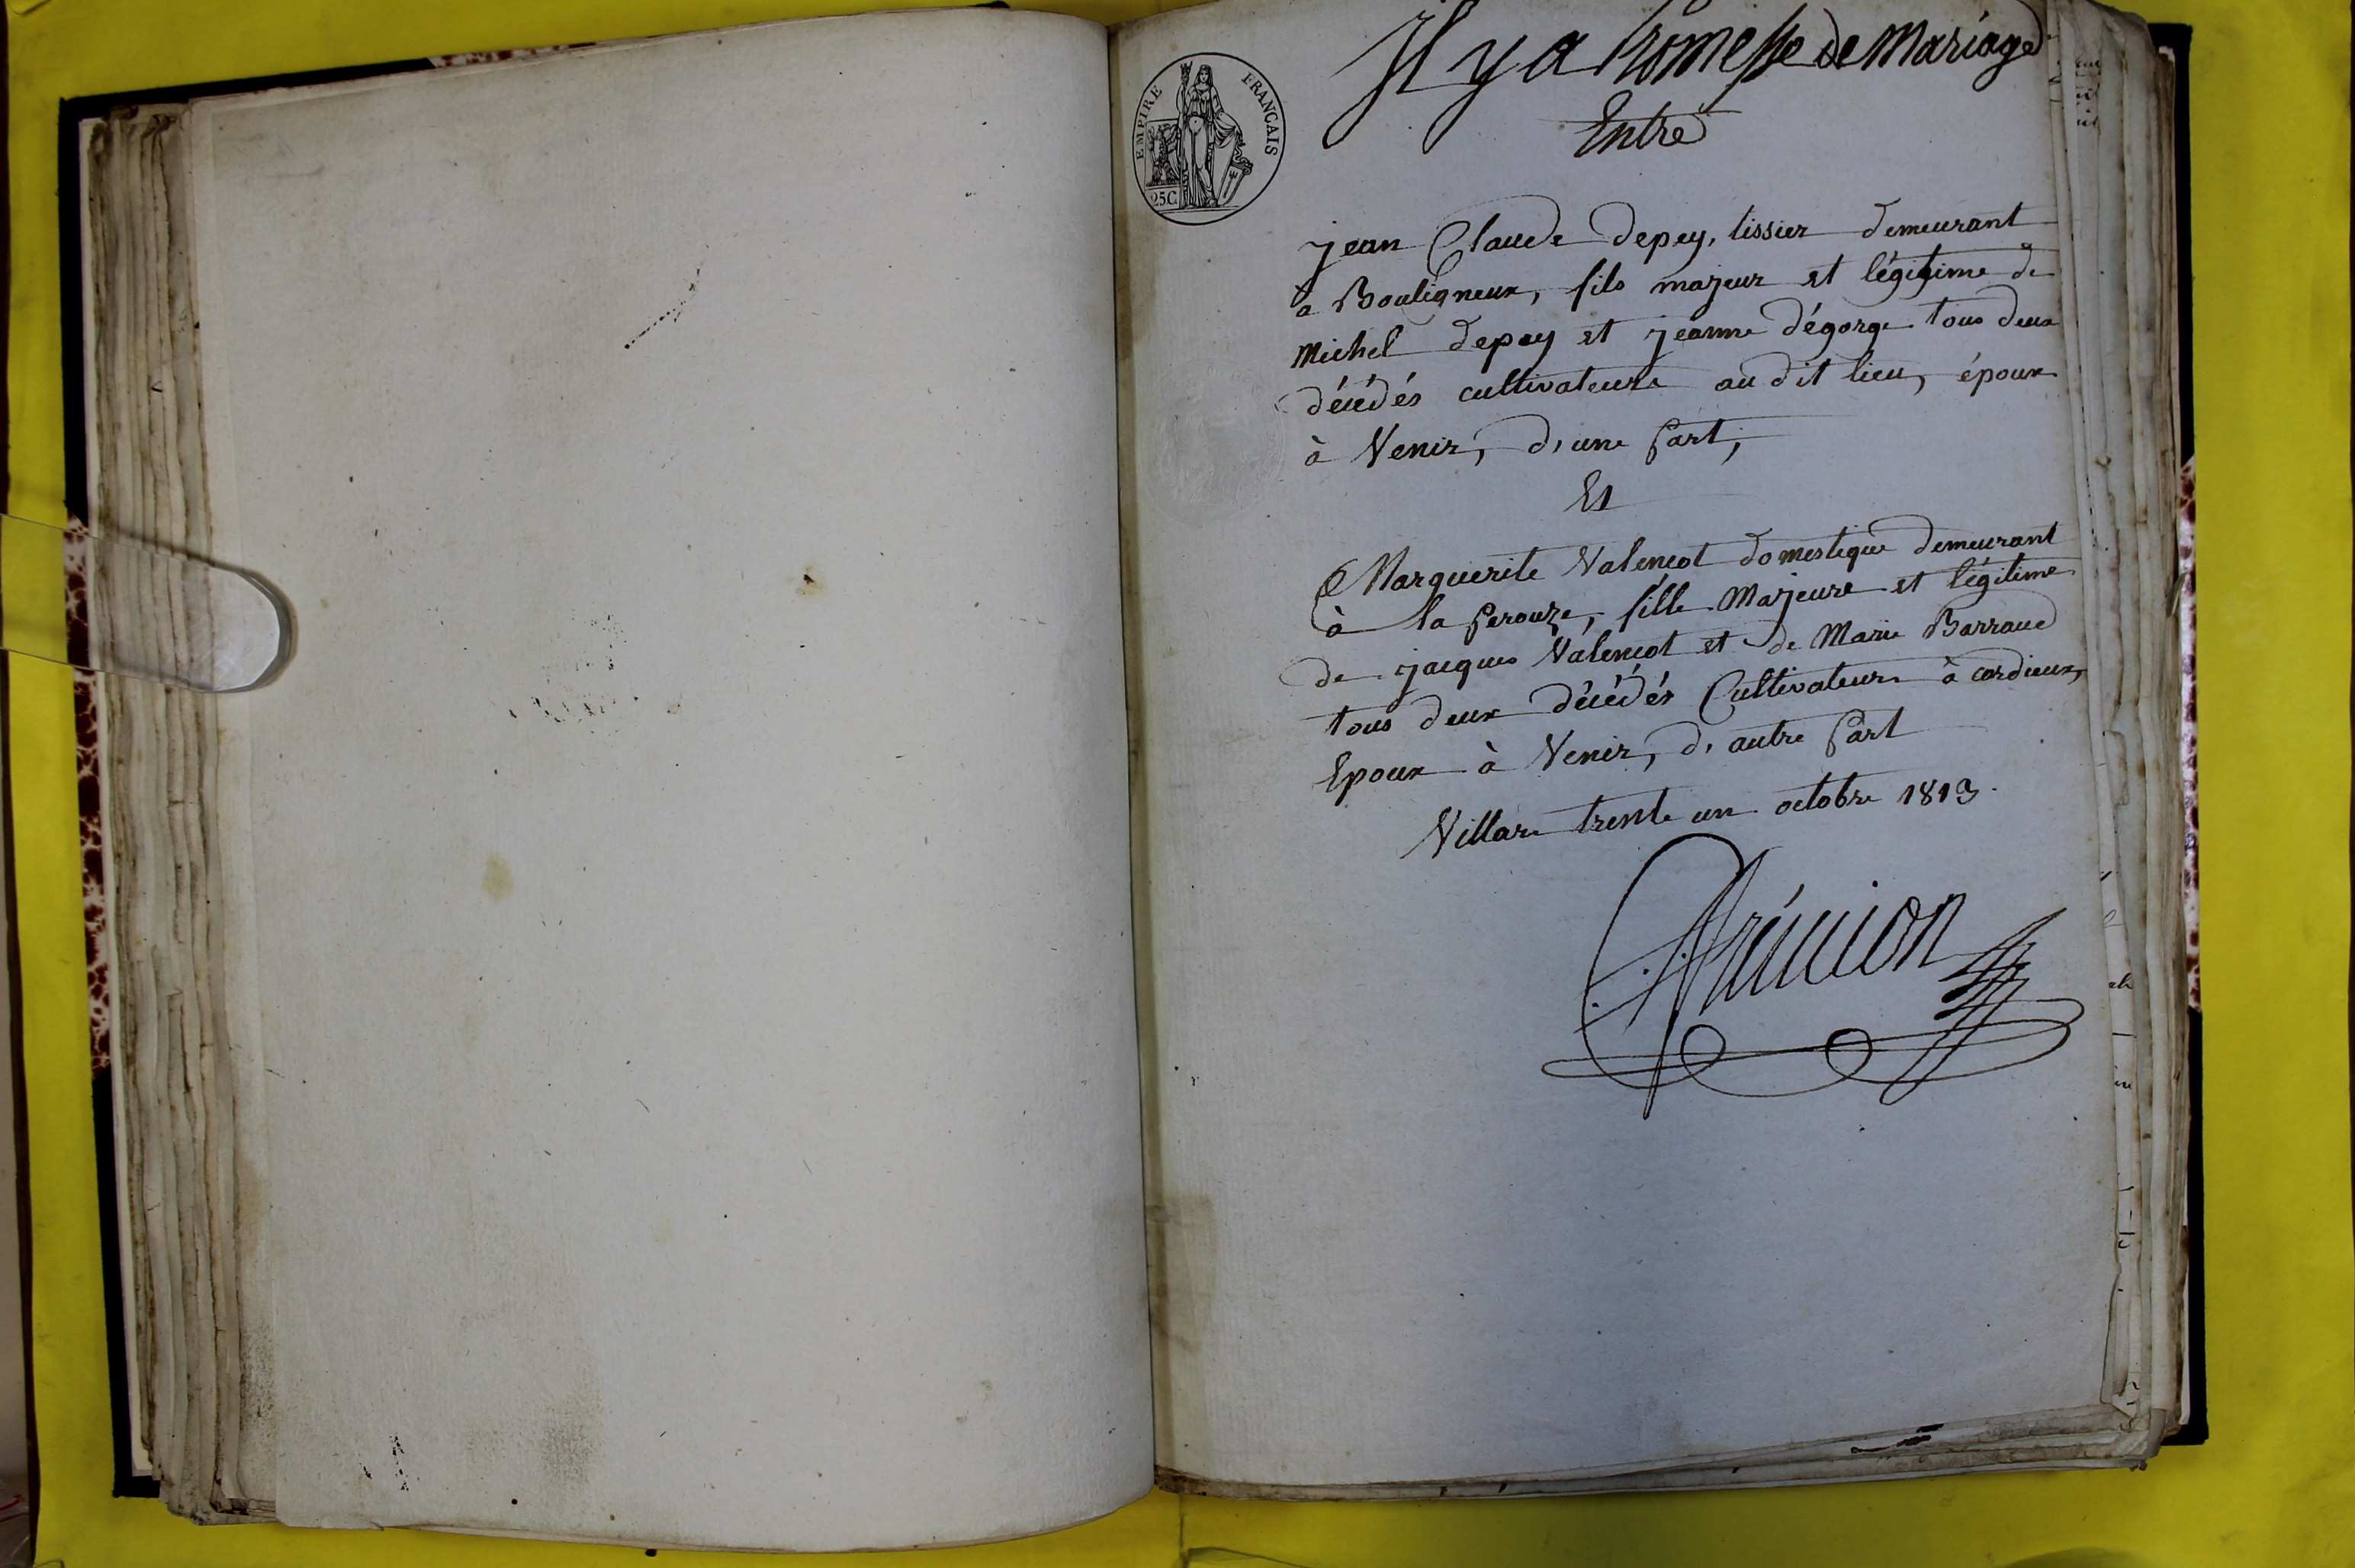 Il y a Promesse de Mariage
EMPIRE FRANÇAIS
25C.
Entre
jean Claude depey, tissier demeurant
à Bouligneux, fils majeur et légitime de
Michel depey et jeanne dégorge tous deux
décédés cultivateurs au dit lieu, époux
à Venir, d'une part,
Et
Marguerite Valencot domestique demeurant
à la perouze, fille Majeure et légitime
de jacques Valencot et de Marie Barraud
tous deux décédés Cultivateurs à cordieux,
Epoux à Venir, d'autre part
Villars trente un octobre 1813.